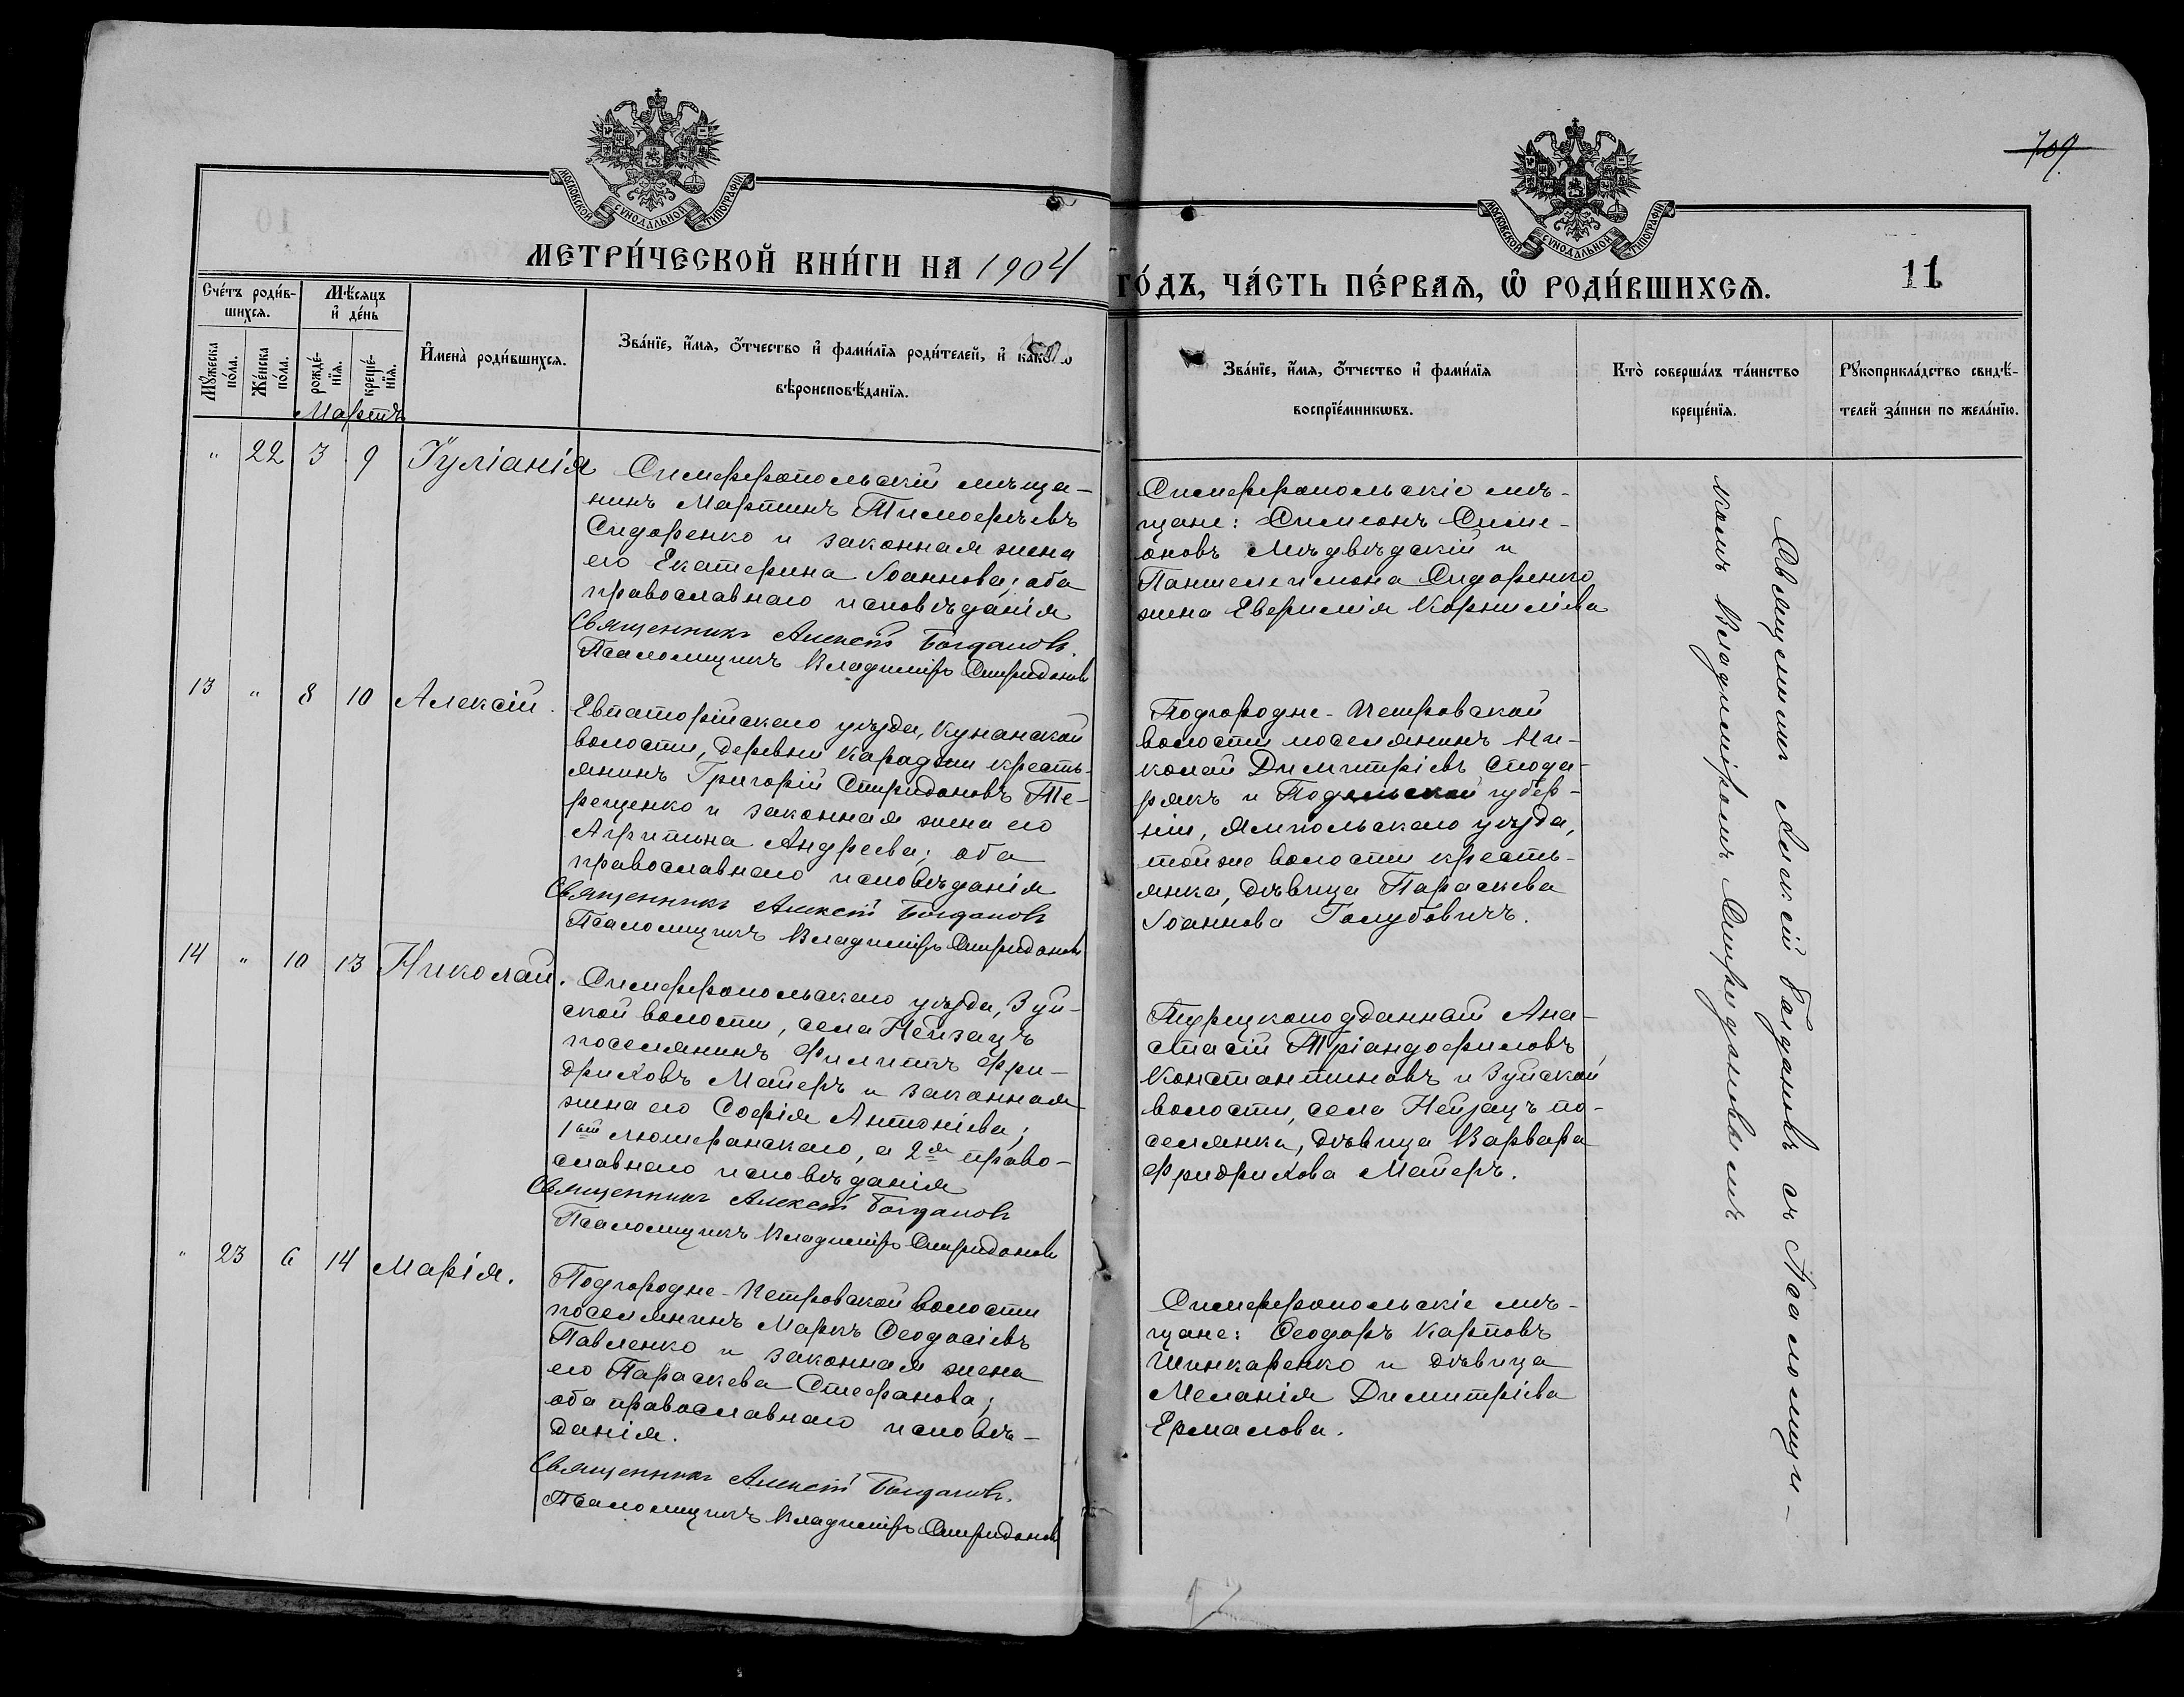 709
МОСКОВСКОЙ СУНОДАЛЬНОЙ ТИПОГРАФІИ
МОСКОВСКОЙ СУНОДАЛЬНОЙ ТИПОГРАФІИ
МЕТРИ́ЧЕСКОЙ КНИ́ГИ НА 1904
ГО́ДЪ, ЧА́СТЬ ПЕ́РВАЯ, Ѡ РОДИ́ВШИХСЯ.
11
Сче́тъ роди́в-
шихся.
Мѣ́сяцъ
и де́нь
Му́жеска
по́ла.
Же́нска
по́ла.
рожде́-
нїя.
креще́-
нїя.
Имена̀ роди́вшихся.
Зва́нїе, и́мя, о́тчество и фами́лїя роди́телей, и како́гѡ
вѣроисповѣ́данїя.
Зва́нїе, и́мя, о́тчество и фами́лїя
воспрїе́мникѡвъ.
Кто̀ соверша́лъ та́инство
креще́нїя.
Рꙋкоприкла́дство свидѣ́-
телей за́писи по жела́нїю.
Мартъ
" 22 3 9 Іуліанія
Симферопольскій мѣща-
нинъ Мартинъ Тимофѣевъ
Сидоренко и законная жена
его Екатерина Іоаннова; оба
православнаго исповѣданія
Священникъ Алексій Богдановъ.
Псаломщикъ Владиміръ Спиридоновъ
Симферопольскіе мѣ-
щане: Симеонъ Симе-
оновъ Мѣдвѣдскій и
Пантелеимона Сидоренко
жена Евфимія Корниліева
13 " 8 10 Алексій.
Евпаторійскаго уѣзда, Кунанской
волости, деревни Караджи кресть-
янинъ Григорій Спиридоновъ Те-
рещенко и законная жена его
Агрипина Андреева; оба
православнаго исповѣданія
Священникъ Алексій Богдановъ
Псаломщикъ Владиміръ Спиридоновъ
Подгородне-Петровской
волости поселянинъ Ни-
колай Димитріевъ Спода-
рякъ и Подольской губер-
ніи, Ямпольскаго уѣзда,
той же волости кресть-
янка, дѣвица Параскева
Іоаннова Голубовичъ.
14 " 10 13 Николай.
Симферопольскаго уѣзда, Зуй-
ской волости, села Нейзацъ
поселянинъ Филиппъ Фри-
дриховъ Майеръ и законная
жена его Софія Антоніева;
1ый лютеранскаго, а 2я право-
славнаго исповѣданія
Священникъ Алексій Богдановъ
Псаломщикъ Владиміръ Спиридоновъ
Турецкоподданный Ана-
стасій Тріандофиловъ
Константиновъ и Зуйской
волости, села Нейзацъ по-
селянка, дѣвица Варвара
Фридрихова Майеръ.
" 23 6 14 Марія.
Подгородне-Петровской волости
поселянинъ Маркъ Ѳеодосіевъ
Павленко и законная жена
его Параскева Стефанова;
оба православнаго исповѣ-
данія.
Священникъ Алексій Богдановъ.
Псаломщикъ Владиміръ Спиридоновъ
Симферопольскіе мѣ-
щане: Ѳеодоръ Карповъ
Шинкаренко и дѣвица
Меланія Димитріева
Ермалова.
Священникъ Алексій Богдановъ съ Псаломщи-
комъ Владиміромъ Спиридоновымъ